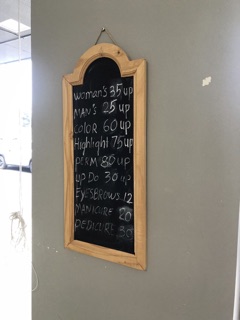 Woman's 35 up
MAN'S 25 up
COLOR 60 up
Highlight 75 up
PERM 80 up
up Do 30 up
EYESBROWS 12
MANICURE 20
PEDICURE 30